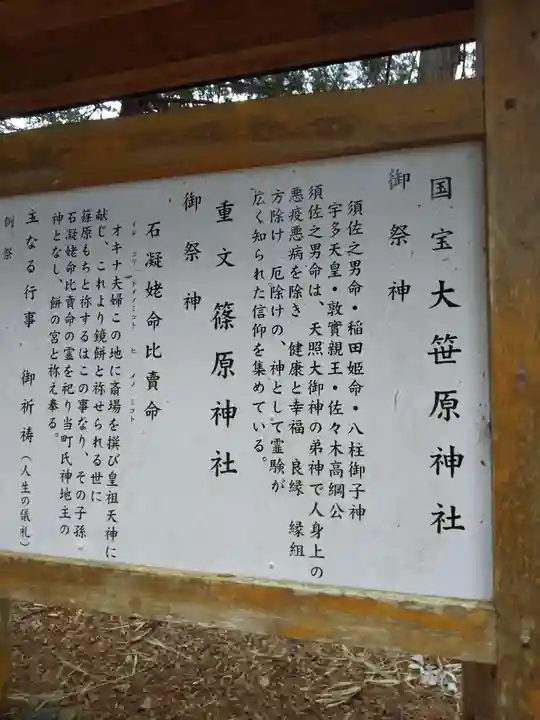 国宝 大笹原神社
御祭神
須佐之男命・稲田姫命・八柱御子神
宇多天皇・敦實親王・佐々木高綱公
須佐之男命は、天照大御神の弟神で人身上の
悪疫悪病を除き 健康と幸福 良縁 縁組
方除け 厄除けの、神として霊験が
広く知られた信仰を集めている。
重文 篠原神社
御祭神
石凝姥命比賣命
イシ コリ トメノミコト ヒ メノ ミコト
オキナ夫婦この地に斎場を撰び皇祖天神に
献じ、これより鏡餅と祢せられる世に
篠原もちと祢するはこの事なり、その子孫
石凝姥命比賣命の霊を祀り当町氏神地主の
神となし、餅の宮と祢え奉る。
主なる行事 御祈祷（人生の儀礼）
例祭